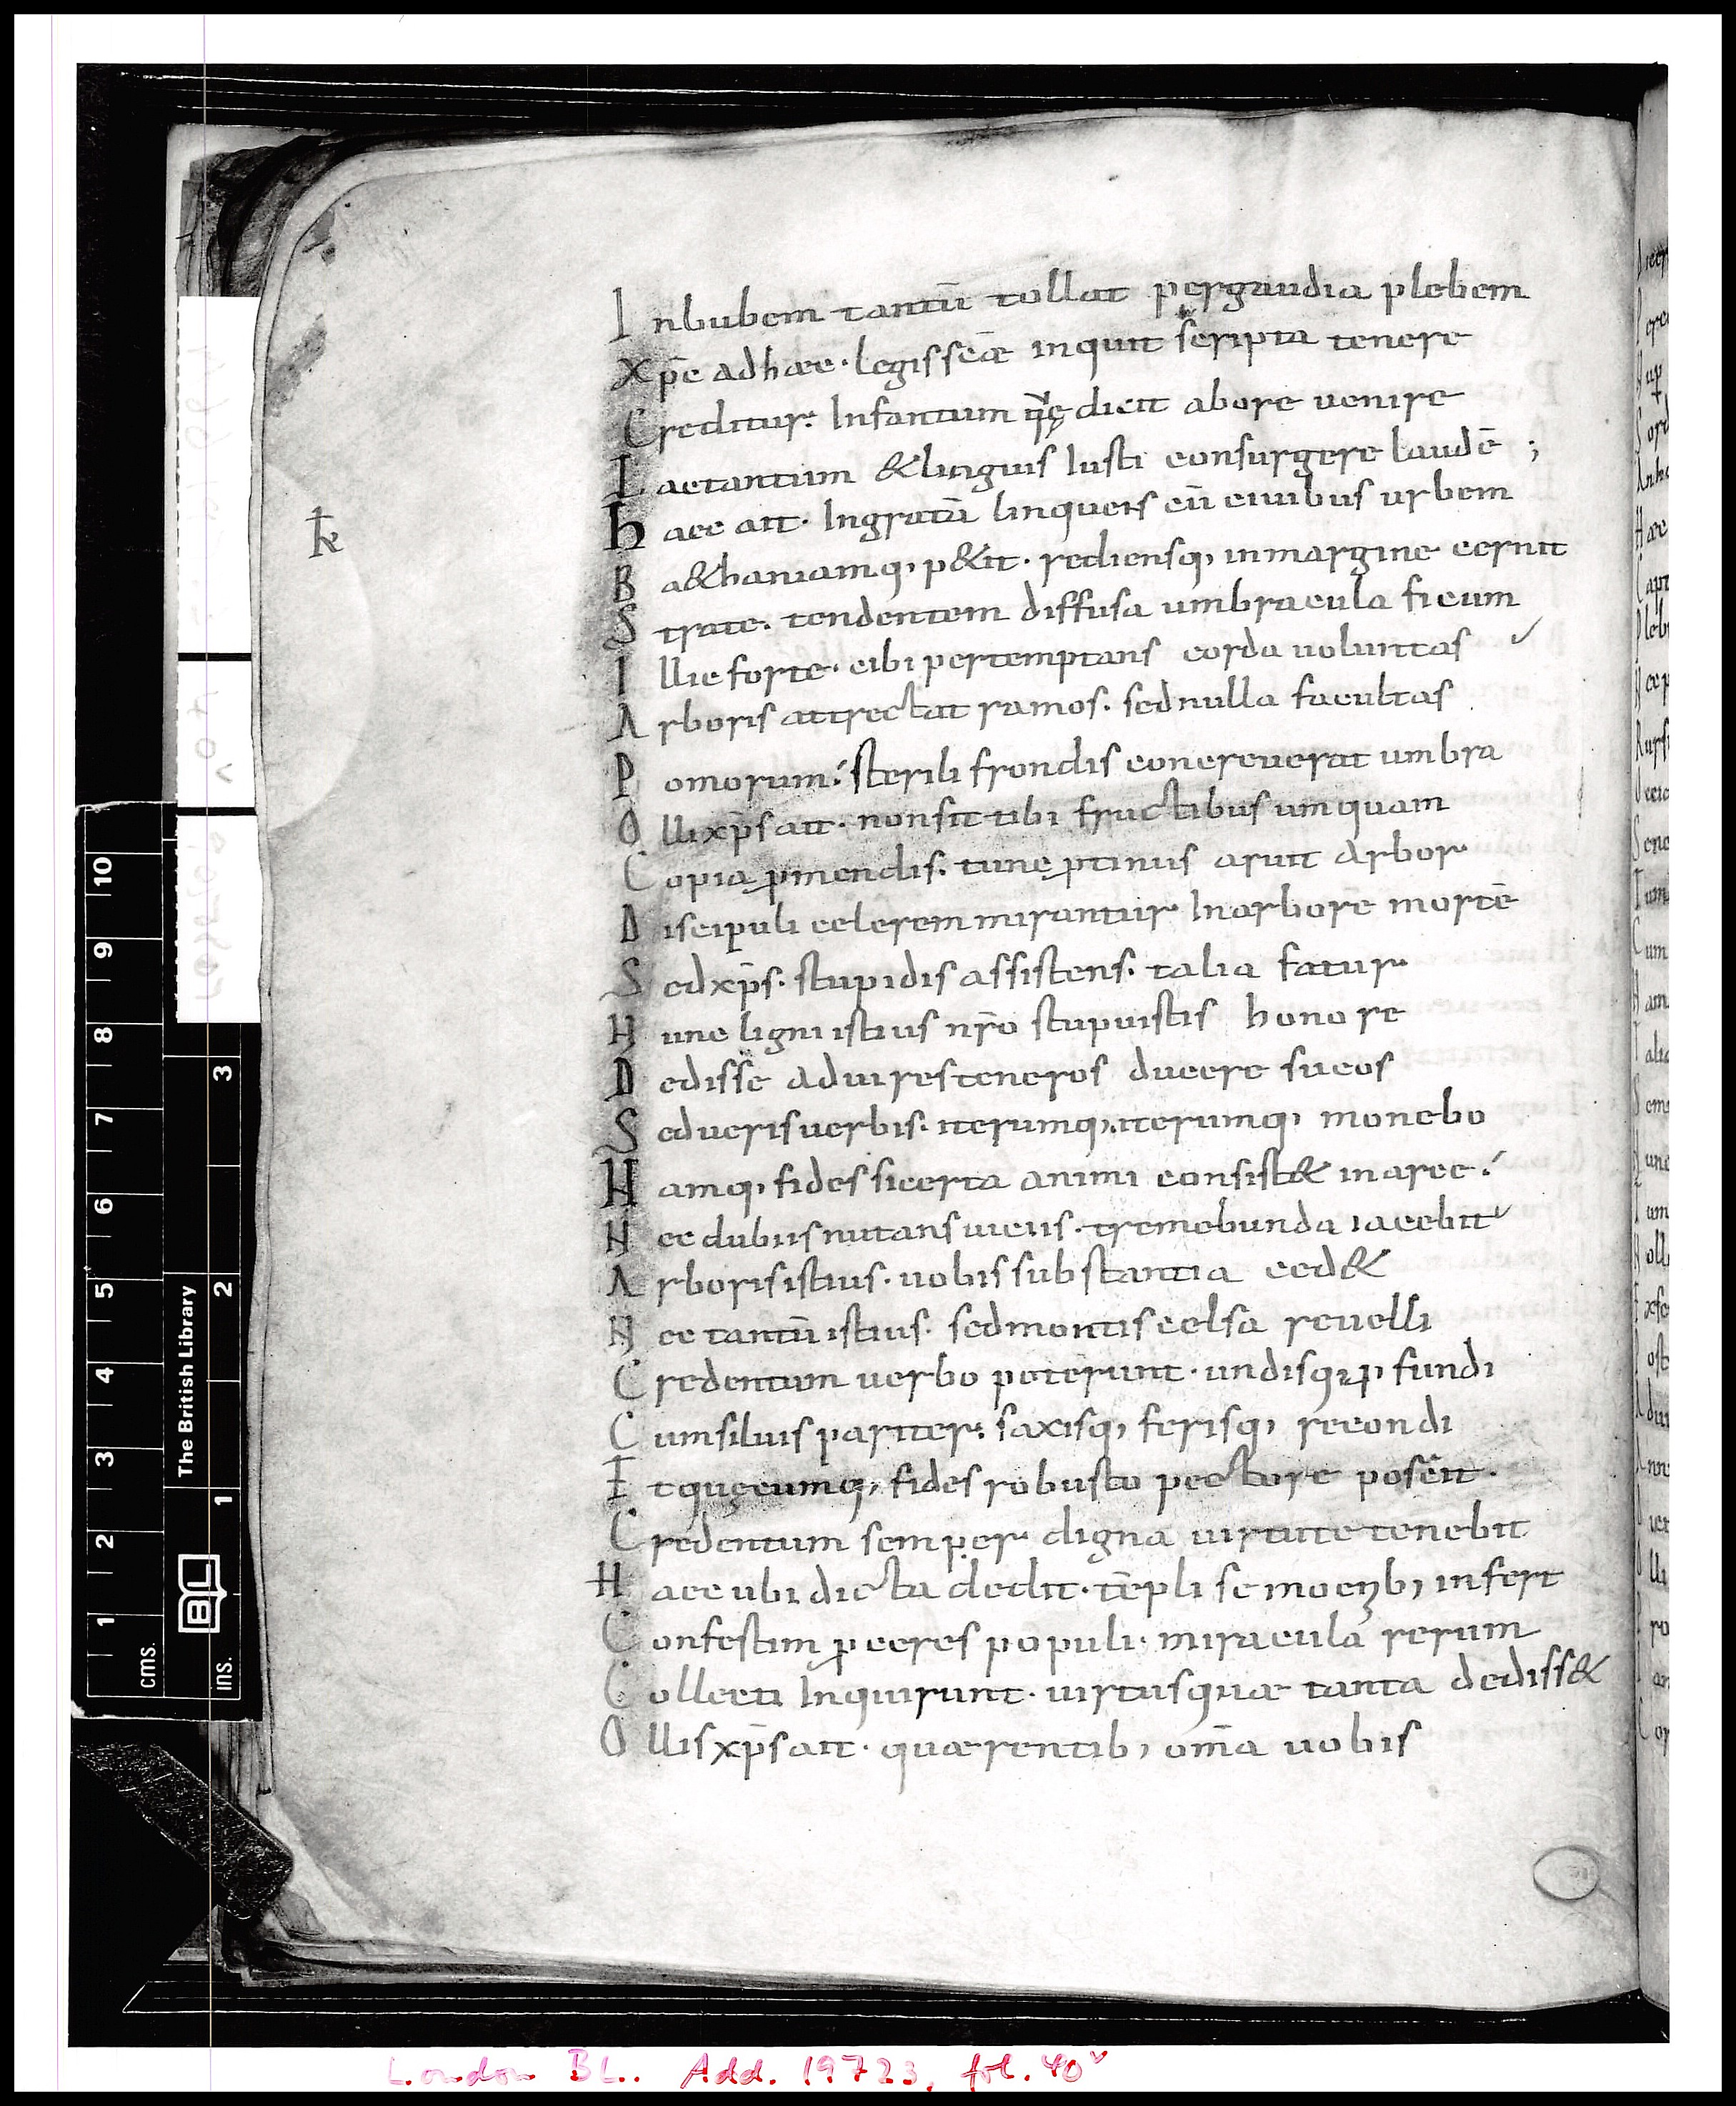 Inbubem tantū tollat pergaudia plebem
Xp̄e adhaec· legisseūs inquit scripta tenere
Creditur. Infantum q̄lę dicit abore uenire
Laetantum &linguis Iusti consurgere laudē ;
haec ait· Ingratā linquens cū ciuibus urbem
Ba&haniamq, p&it· rediensq, inmargine cernit
Stratę. tendentem diffusa umbracula ficum
Illic forte· cibi pertemptans corda uoluntas
Arboris attrectat ramos. sednulla facultas
Pomorum: sterili frondis concreuerat umbra
Ollixp̄s ait· nonsit tibi fructibus umquam
Copia p̱mendis. tunc p̱tinus aruit Arbor
Discipuli celerem mirantur Inarbore mortē
Sedxp̄s. stupidis assistens. talia fatur
Nunc ligni istius nr̄o stupuistis honore
Dedisse aduires teneros ducere sucos
Seduerisuerbis. iterumq, iterumq, monebo
Namq, fides sicerta animi consist& inarce.
Nec dubiis nutans uiciis· tremebunda iacebit
Arborisistius· uobis substantia ced&
Nec tantū istius· sedmontis celsa reuelli
Credentum uerbo poterunt· undisq, p̱fundi
Cumsiluis pariter. saxisq, ferisq, recondi
Et quęcumq, fides robusto pectore poscit·
Credentum semper digna uirtute tenebit
Haec ubi dicta dedit· tēpli se moenib, infert
Confestim p̱ceres populi· miracula rerum
Collecti Inquirunt· uirtus quae tanta dediss&
Ollisxp̄s ait· quaerentib, om̄a uobis
The British Library
BL
cms.
1 2 3 4 5 6 7 8 9 10
ins.
1 2 3
London BL. Add. 19723, fol. 40v